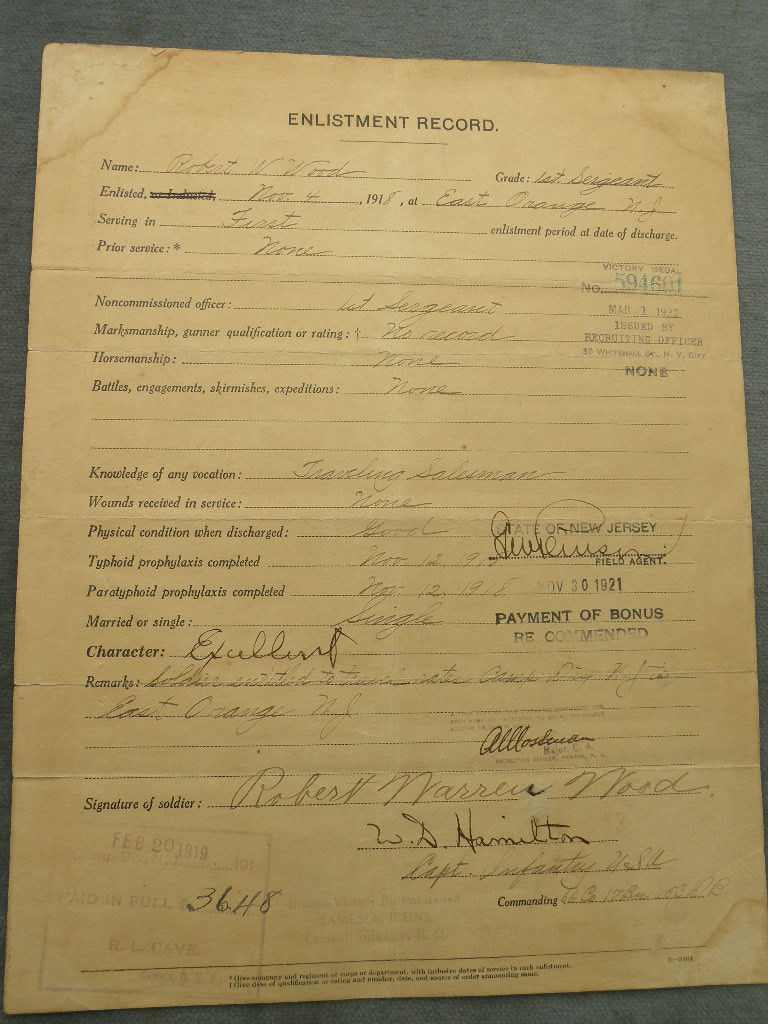 ENLISTMENT RECORD.
Name: Robert W Wood Grade: 1st. Sergeant
Enlisted, or Inducted, Nov. 4, 1918, at East Orange N J
Serving in First enlistment period at date of discharge.
Prior service: * None
VICTORY MEDAL
No. 594601
Noncommissioned officer: 1st Sergeant
MAR 1 1922
Marksmanship, gunner qualification or rating: † No record
ISSUED BY
RECRUITING OFFICER
Horsemanship: None
39 WHITEHALL ST., N. Y. CITY
NONE
Battles, engagements, skirmishes, expeditions: None
Knowledge of any vocation: Traveling Salesman
Wounds received in service: None
Physical condition when discharged: Good
STATE OF NEW JERSEY
Typhoid prophylaxis completed Nov 12, 191
FIELD AGENT.
Paratyphoid prophylaxis completed Nov. 12, 1918
NOV 30 1921
Married or single: Single
PAYMENT OF BONUS
RECOMMENDED
Character: Excellent
Remarks: Soldier entitled to travel rates Camp Dix N J to
East Orange N J
Major, C. A.
RECRUITING OFFICER, NEWARK, N. J.
Signature of soldier: Robert Warren Wood.
W. D. Hamilton
Capt. Infantry U.S.A
Commanding
FEB 20 1919
191
PAID IN FULL $ 36.48
Victory Button issued
R. L. CAVE,
Colonel, Infantry,
* Give company and regiment or corps or department, with inclusive dates of service in each enlistment.
† Give date of qualification or rating and number, date, and source of order announcing same.
3—3164